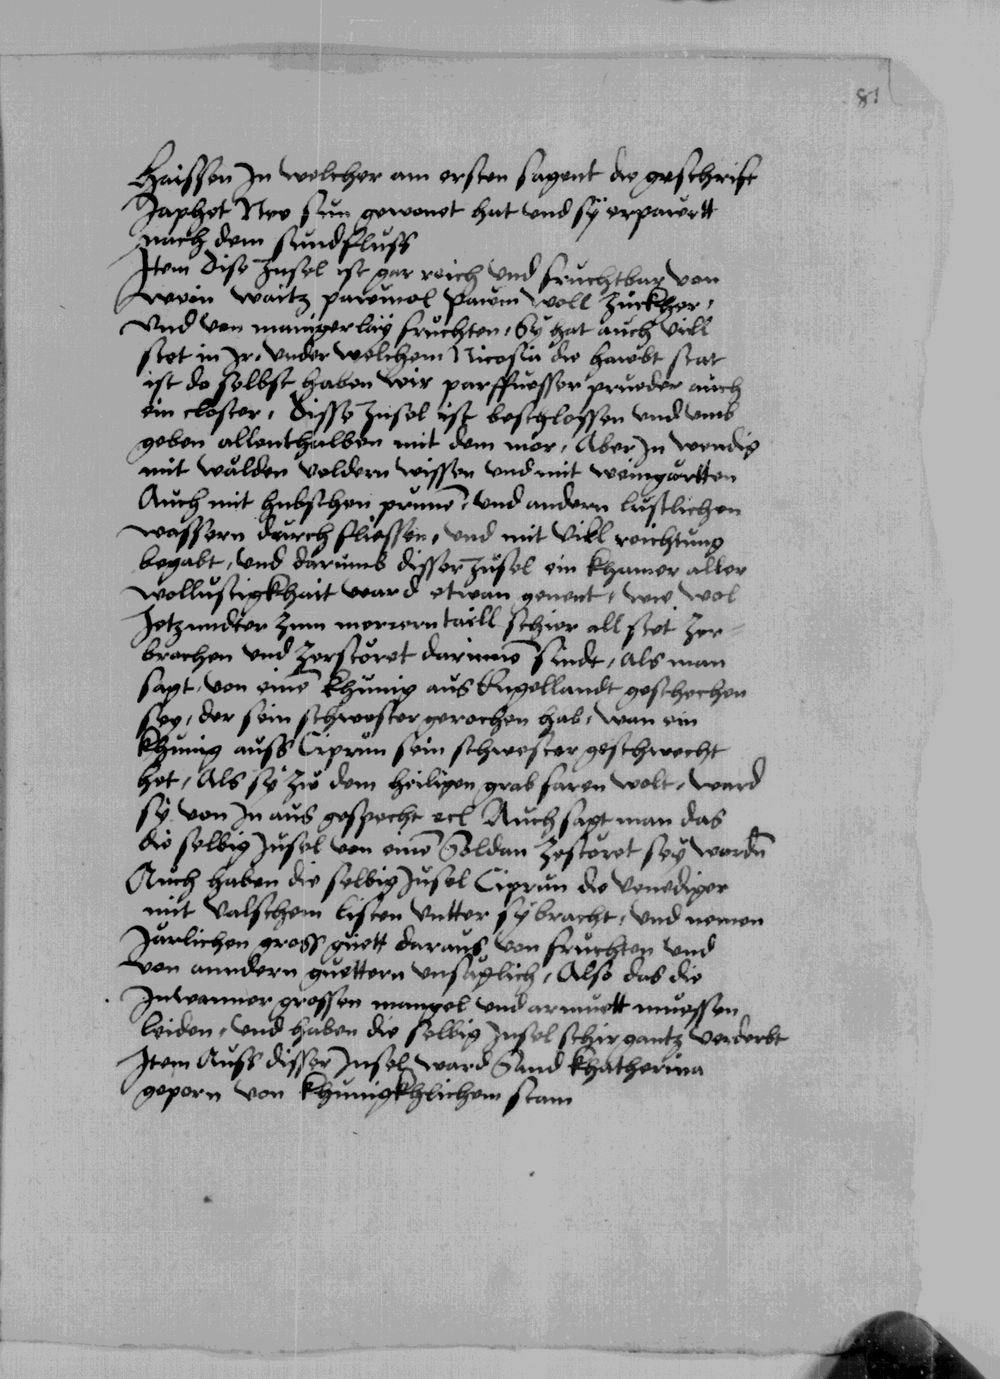 81
Haissen In welcher am ersten sagent die geschrift
Japhet Noe sun gewonet hat und sÿ erpawett
nach dem sundfluss
Item Dise Insel ist gar reich und fruchtbar von
wein waitz pawmol pawm woll Zuckher,
und von manigerlaÿ fruchten, Sÿ hat auch vill
stet in Jr, under welchem Nicosia die haubt stat
ist do selbst haben wir parffuesser prueder auch
ein closter, Disse Insel ist beschlossen und umb
geben allenthalben mit dem mör, Aber In wendig
mit wälden veldern wissen und mit weingärtten
Auch mit hubschen prunē, und andern lustlichen
wassern durch fliessen, und mit vill reichtung
begabt, und darumb disser Insel ein khamer aller
wollustigkhait ward etwan genent, wie wol
Jetzundter Zum merern taill schier all stet Zer=
brochen und Zerstöret darinnē sindt, Als man
sagt, von einē khunig aus Engellandt geschechen
seÿ, der sein schwester gerochen hab, wan ein
khunig auss Ciprun sein schwester geschwecht
het, Als sÿ Zu dem heiligen grab faren wolt, ward
sÿ von Jn aus gespecht ecl Auch sagt man das
die selbig Insel von einē Soldan Zestöret seÿ wordn̄
Auch haben die selbig Insel Ciprun die Venediger
mit valschem listen untter sÿ bracht, und nemen
Järlichen gross guett daraus von fruchten und
von anndern guettern unsäglich, Also das die
Inwanner grossen mangel und armuett muessen
leiden, und haben die selbig Insel schir gantz verderbt
Item Auss disser Insel ward Sand Khatherina
geporn von khunigkhlichem stam